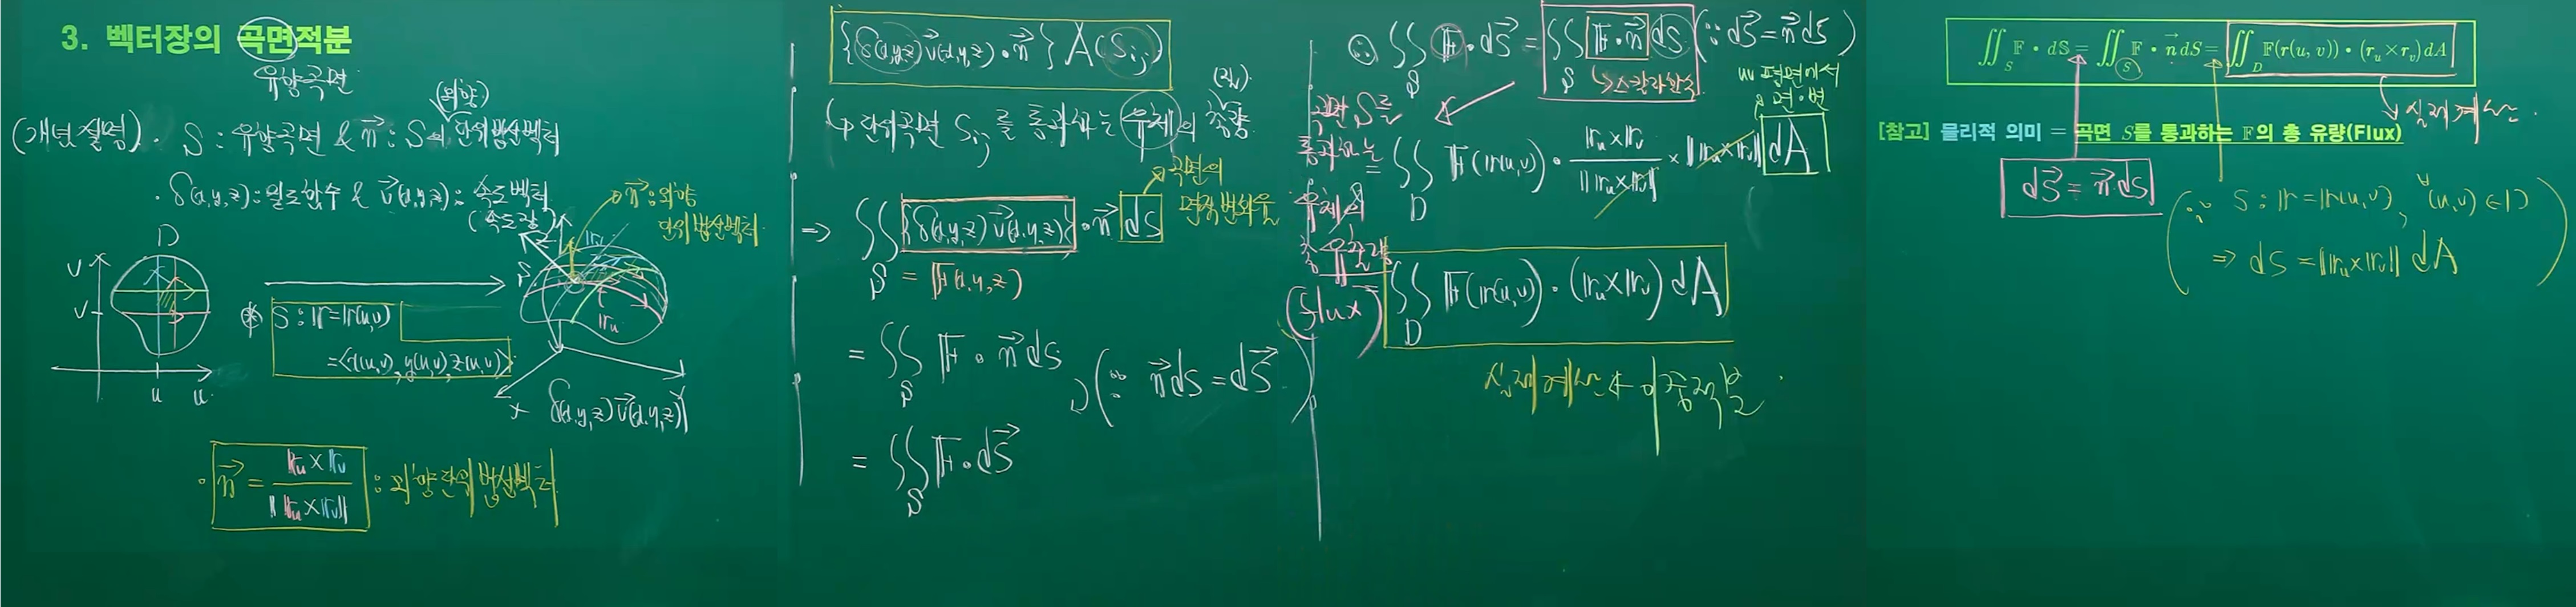 3. 벡터장의 곡면적분
유향곡면
(외향)
(개념설명). S : 유향곡면 & n⃗ : S의 단위법선벡터
· δ(x,y,z) : 밀도함수 & v⃗(x,y,z) : 속도벡터
(속도장)
n⃗ : 외향
단위법선벡터
D
v
v
u
u
S : r = r(u,v)
= <x(u,v), y(u,v), z(u,v)>
z
S
r_v
r_u
x
y
δ(x,y,z) v⃗(x,y,z)
· n⃗ = r_u × r_v / ||r_u × r_v|| : 외향단위법선벡터
{δ(x,y,z) v⃗(x,y,z) · n⃗} A(S_ij)
(질)
↳ 단위곡면 S_ij 를 통과하는 유체의 총량
곡면의
면적변화율
⇒ ∬_S {δ(x,y,z) v⃗(x,y,z)} · n⃗ dS
= F(x,y,z)
= ∬_S F · n⃗ dS
(∵ n⃗ dS = dS⃗)
= ∬_S F · dS⃗
∴ ∬_S F · dS⃗ = ∬_S F · n⃗ dS (∵ dS⃗ = n⃗ dS)
↳ 스칼라함수
uv 평면에서
면·변
곡면 S를
통과하는
유체의
총 유출량
(flux)
= ∬_D F(r(u,v)) · r_u × r_v / ||r_u × r_v|| × ||r_u × r_v|| dA
= ∬_D F(r(u,v)) · (r_u × r_v) dA
실제계산 ← 이중적분
∬_S F · dS = ∬_S F · n⃗ dS = ∬_D F(r(u, v)) · (r_u × r_v) dA
↳ 실제계산.
[참고] 물리적 의미 = 곡면 S를 통과하는 F의 총 유량(Flux)
dS⃗ = n⃗ dS
(∵ S : r = r(u,v), ∀(u,v) ∈ D
⇒ dS = ||r_u × r_v|| dA)